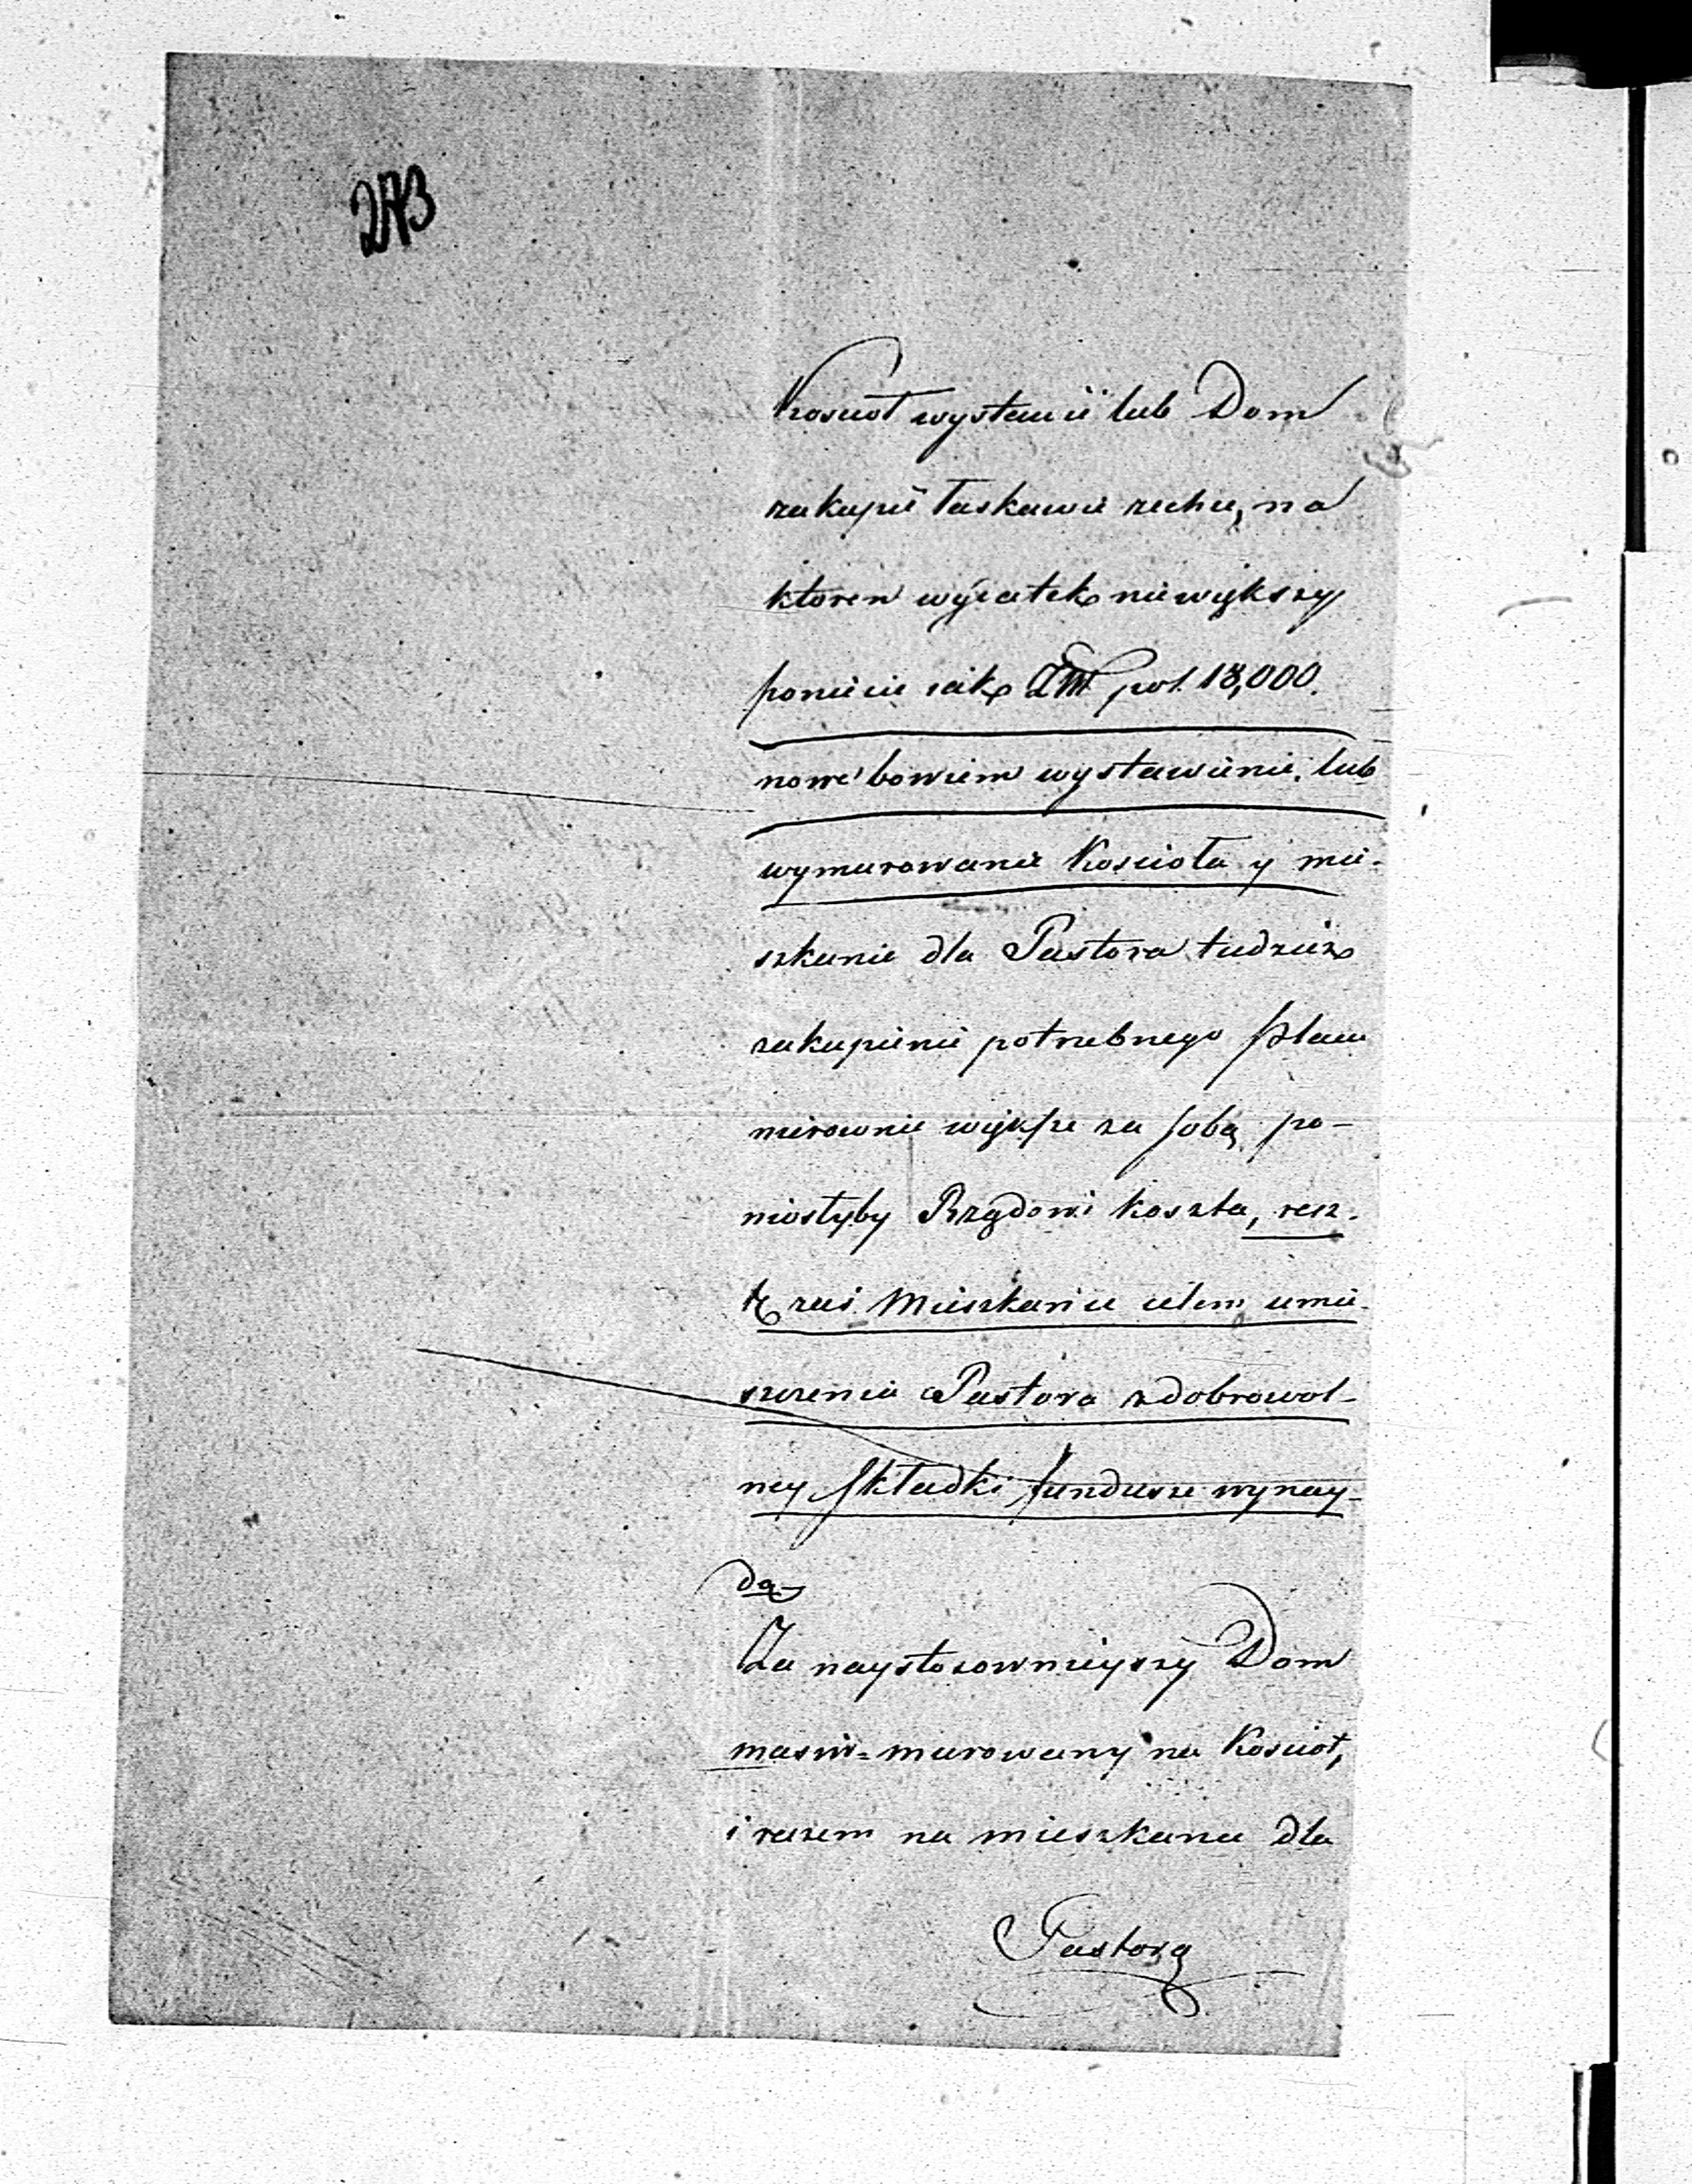 273
Koscioł wystawić lub Dom
zakupić łaskawie zechce, na
ktoren wyiatek niewiększy
poniesie iak Złł pol. 18,000.
nowe bowiem wystawienie, lub
wymurowanie Kościoła y mie-
szkanie dla Pastora tudzież
zakupienie potrzebnego placu
nierownie większe za sobą po-
niosłyby Rządowi koszta, resz-
tę zaś Mieszkańce celem umie-
szczenia Pastora z dobrowol-
ney składki fundusze wynay-
dą
Za naystosownieyszy Dom
masiw=murowany na Kościoł,
i razem na mieszkanie dla
Pastora